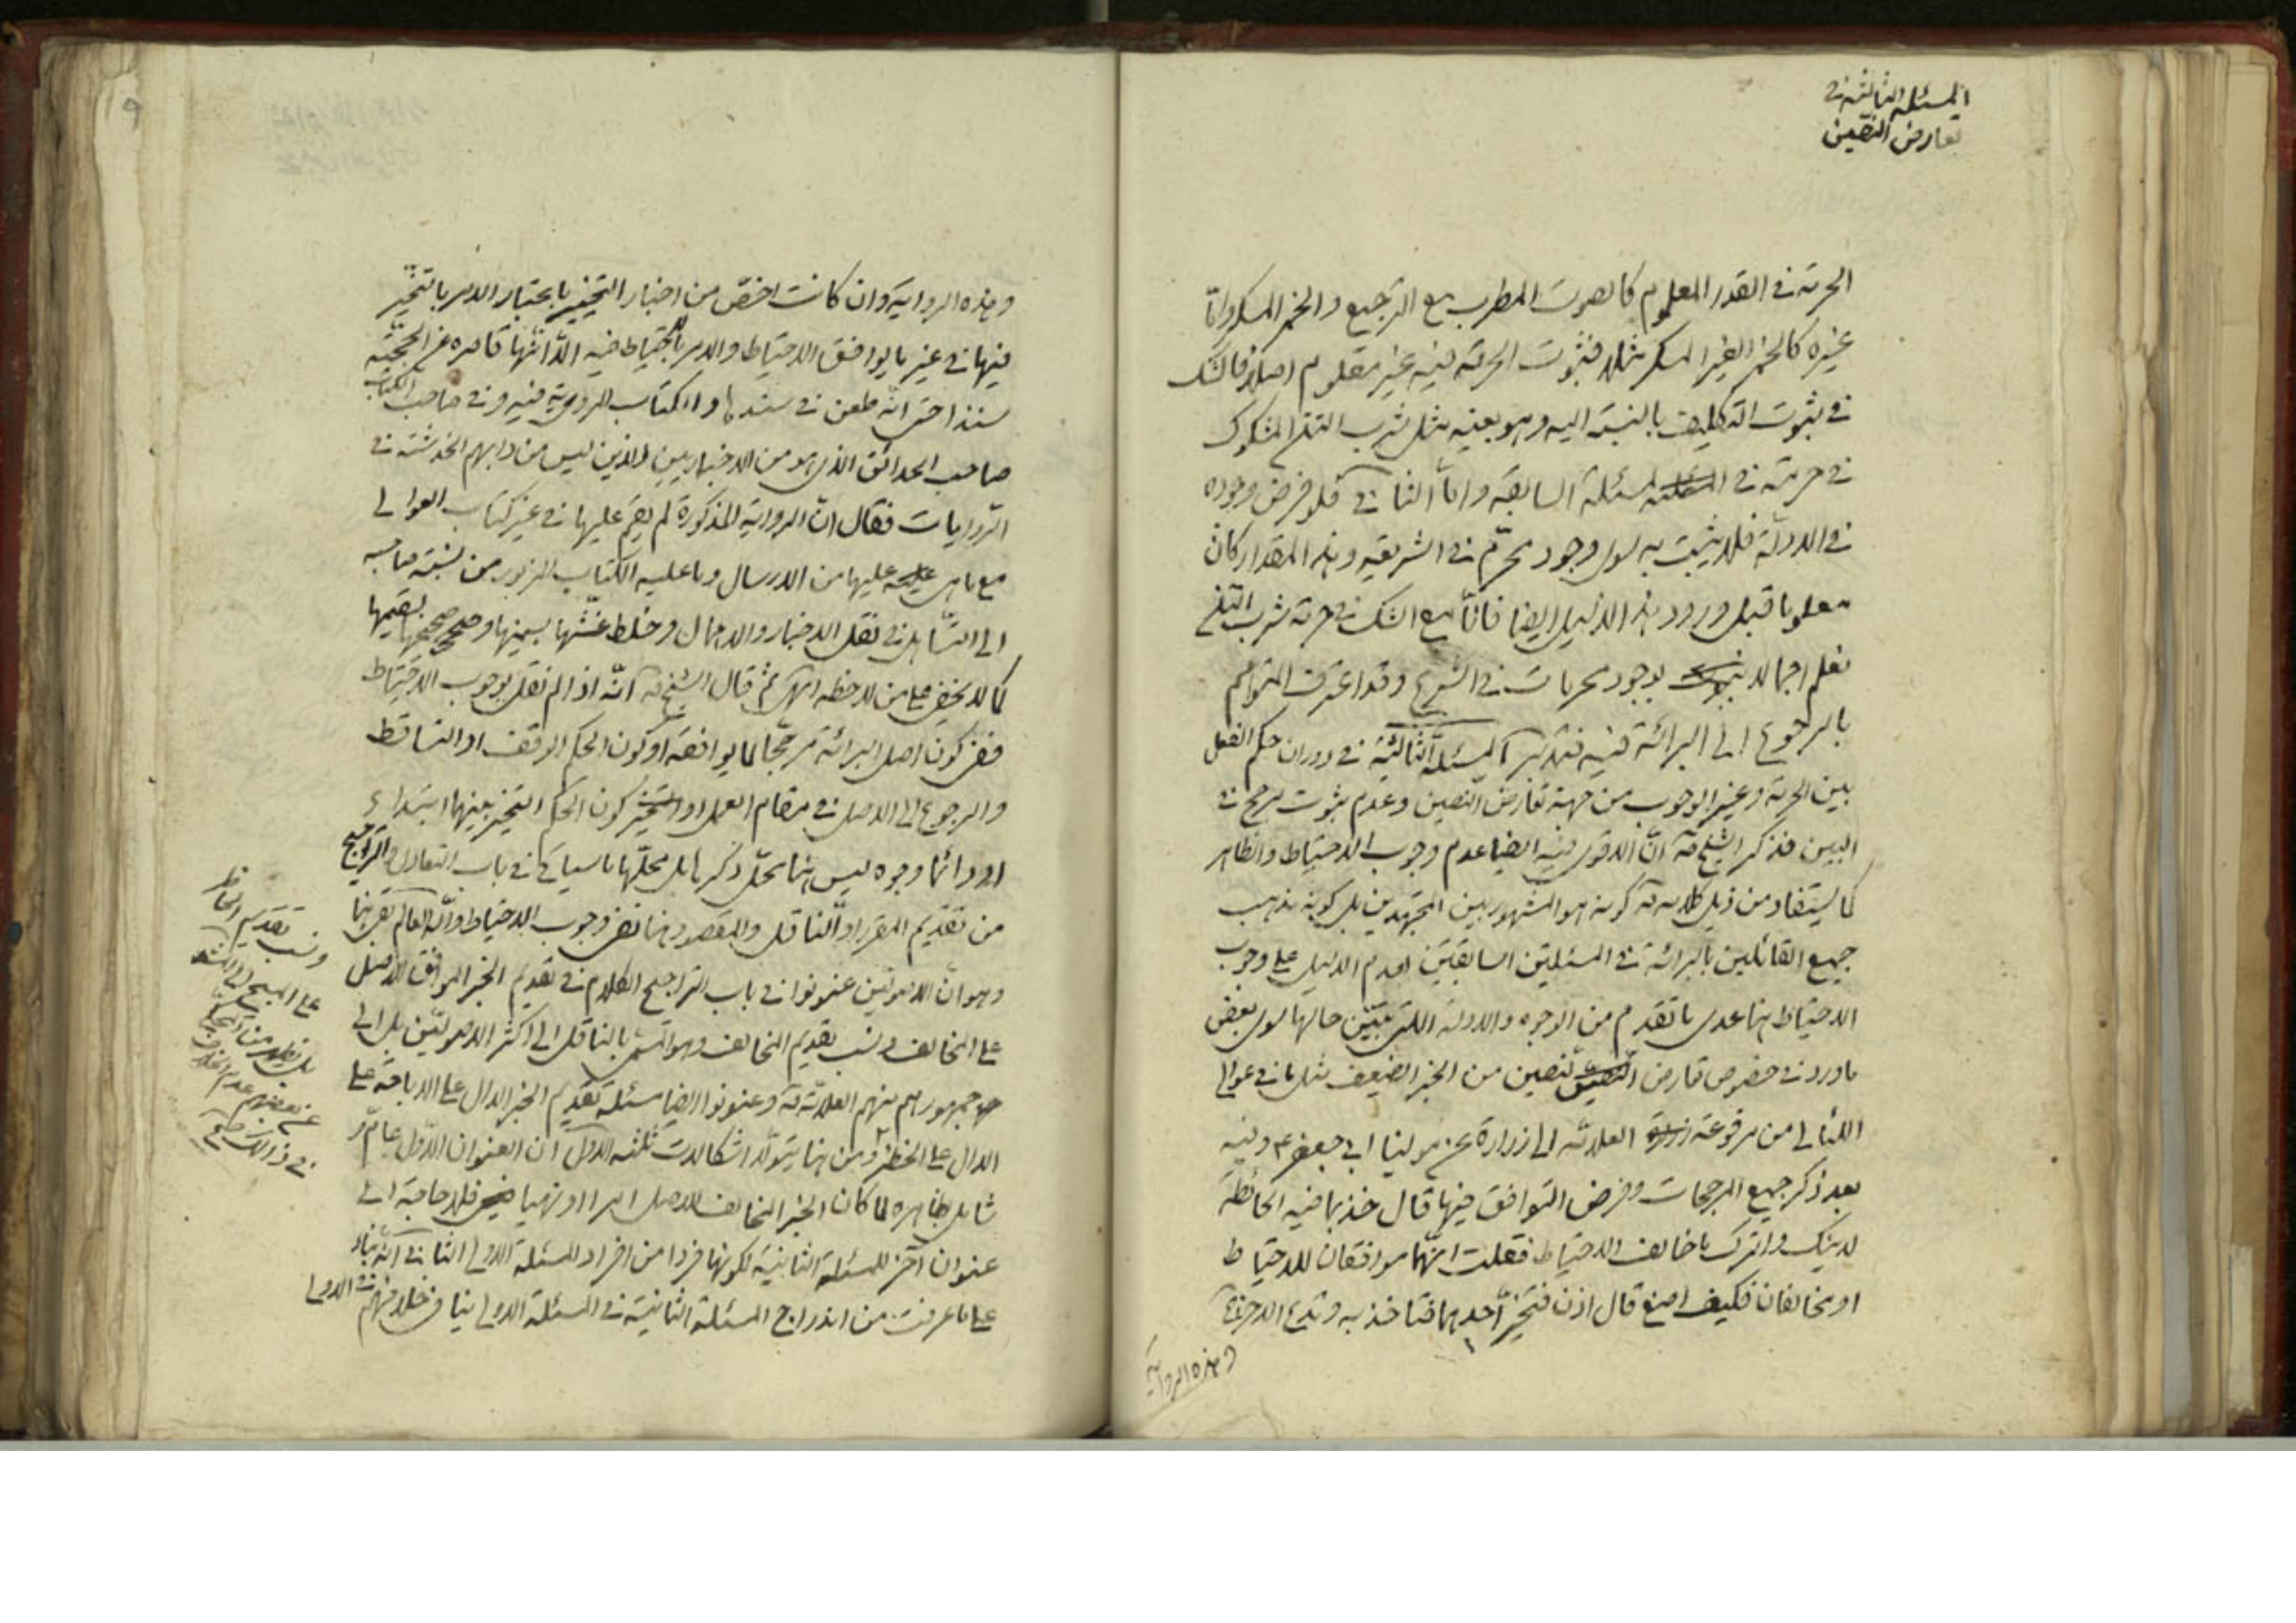 المسئلة الثالثة في
تعارض النصين
الحرمة في القدر المعلوم كالصوت المطرب مع الترجيع والخمر المسكر وامّا
غيره كالخمر الغير المسكر مثلا فثبوت الحرمة فيه غير معلوم اصلا فالشك
في ثبوت التكليف بالنسبة اليه وهو بعينه مثل شرب التتن المشكوك
في حرمته في المسئلة السابقة وامّا الثاني فلو فرض وجوده
في الادلّة فلا يثبت به سوى وجود محرّم في الشريعة وهذا المقدار كان
معلوما قبل ورود هذا الدليل ايضا فانّا مع الشك في حرمة شرب التتن
نعلم اجمالا بوجود محرمات في الشرع وقد اعترف المتوهّم
بالرجوع الى البرائة فيه فتدبّر المسئلة الثالثة في دوران حكم الفعل
بين الحرمة وغير الوجوب من جهة تعارض النصين وعدم ثبوت مرجح في
البين فذكر الشيخ قه انّ الاقوى فيه ايضا عدم وجوب الاحتياط والظاهر
كما يستفاد من ذيل كلامه قه كونه هو المشهور بين المجتهدين بل كونه مذهب
جميع القائلين بالبرائة في المسئلتين السابقتين لعدم الدليل على وجوب
الاحتياط هنا عدى ما تقدم من الوجوه والادلة اللتى تبيّن حالها سوى بعض
ما ورد في خصوص تعارض النصين من الخبر الضعيف مثل ما في عوالي
اللئالي من مرفوعة العلامة الى زرارة عن مولينا ابي جعفر ع وفيه
بعد ذكر جميع المرجحات وفرض التوافق فيها قال خذ بما فيه الحائطة
لدينك واترك ما خالف الاحتياط فقلت انّهما موافقان للاحتياط
او مخالفان فكيف اصنع قال اذن فتخيّر احدهما فتاخذ به وتدع الاخر
وهذه الرواية
٩
وهذه الرواية وان كانت اخصّ من اخبار التخيير باعتبار الامر بالتخيير
فيها في غير ما يوافق الاحتياط والامر بالاحتياط فيه الّا انّها قاصرة عن الحجّيّة
سندا حتى انّه طعن في سندها والكتاب المروية فيه وفي صاحب الكتاب
صاحب الحدائق الذى هو من الاخباريين الذين ليس من دابهم الخدشة في
الرّوايات فقال انّ الرواية المذكورة لم نقف عليها في غير كتاب العوالي
مع ما هي عليها من الارسال وما عليه الكتاب المزبور من نسبة صاحبه
الى التساهل في نقل الاخبار والاهمال وخلط غثّها بسمينها وصحيحها بسقيمها
كما لا يخفى على من لاحظه انتهى ثم قال الشيخ قه انّه اذا لم نقل بوجوب الاحتياط
ففي كون اصل البرائة مرجّحا لما يوافقه او كون الحكم الوقف او التساقط
والرجوع الى الاصل في مقام العمل او كون الحكم التخيير بينهما ابتداء
او دائما وجوه ليس هنا محلّ ذكرها بل محلّها ما سياتى في باب التعادل والتراجيح
من تقديم المقرر او الناقل والمقصود هنا نفى وجوب الاحتياط والله العالم بقى هنا
وهو انّ الاصوليّين عنونوا في باب التراجيح الكلام في تقديم الخبر الموافق للاصل
على المخالف ونسب تقديم المخالف وهو المسمى بالناقل الى اكثر الاصوليّين بل الى
جمهورهم منهم العلامة قه وعنونوا ايضا مسئلة تقديم الخبر الدال على الاباحة على
الدال على الحظر ومن هنا يتولّد اشكالات ثلثه الاوّل ان العنوان الاوّل عامّ
شامل بظاهره لما كان الخبر المخالف للاصل امرا او نهيا فلا حاجة الى
عنوان آخر للمسئلة الثانية لكونها فردا من افراد المسئلة الاولى الثاني انّه بناء
على ما عرفت من اندراج المسئلة الثانية في المسئلة الاولى ينافي خلافهم في الاولى
ونسب تقديم الحاظر
على المبيح الى المشهور
بل يظهر من المحكى
عن بعضهم عدم الخلاف
في ذلك صح